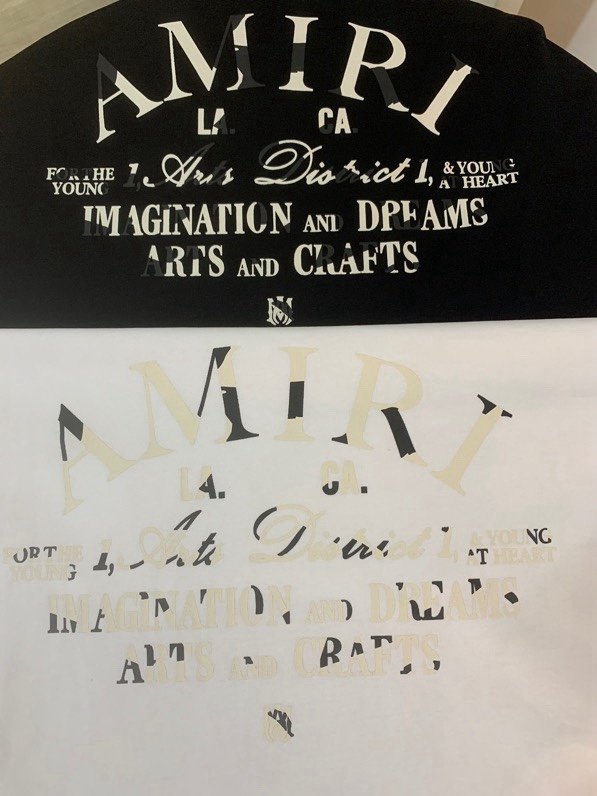 AMIRI
LA. CA.
FOR THE YOUNG 1, Arts District 1, & YOUNG AT HEART
IMAGINATION AND DREAMS
ARTS AND CRAFTS
AMIRI
LA. CA.
FOR THE YOUNG 1, Arts District 1, & YOUNG AT HEART
IMAGINATION AND DREAMS
ARTS AND CRAFTS